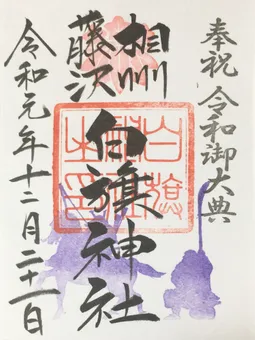 奉祝 令和御大典
相州
藤沢
白旗神社
白旗神社之印
令和元年十二月二十一日